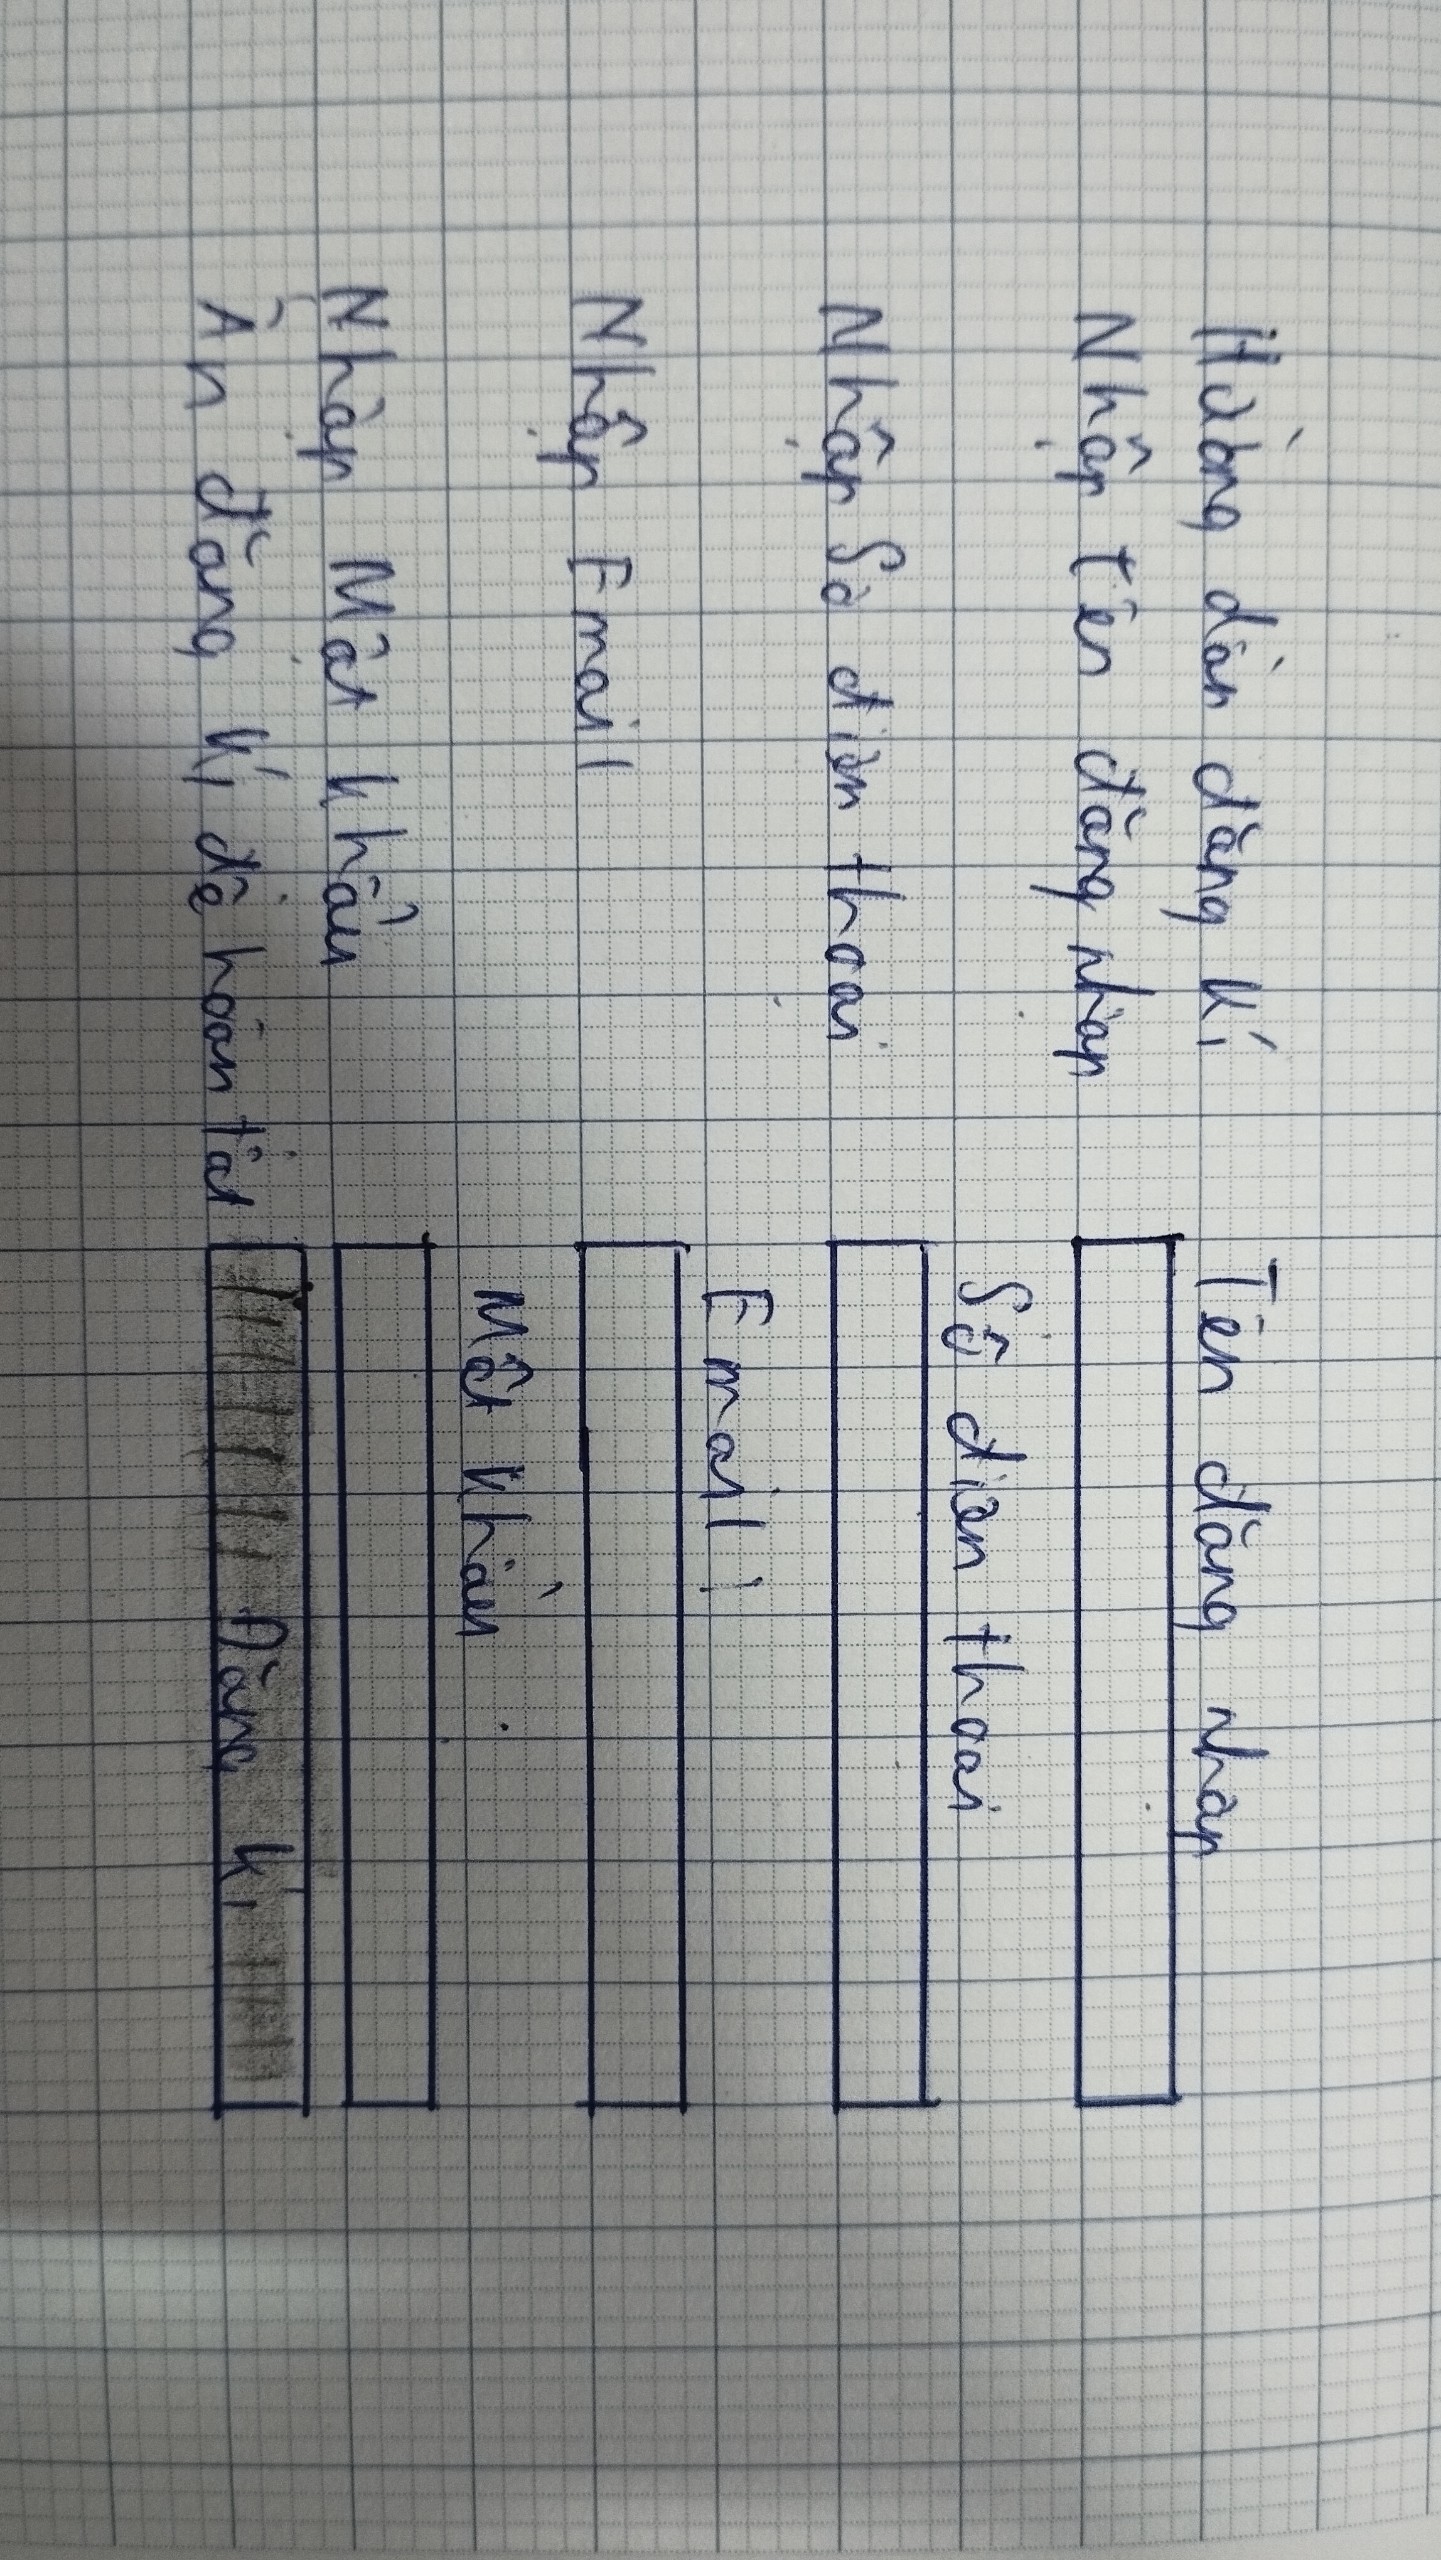 Hướng dẫn đăng kí
Nhập tên đăng nhập
Nhập Số điện thoại
Nhập Email
Nhập Mật khẩu
Ấn đăng kí để hoàn tất
Tên đăng nhập
Số điện thoại
Email:
Mật khẩu
Đăng kí